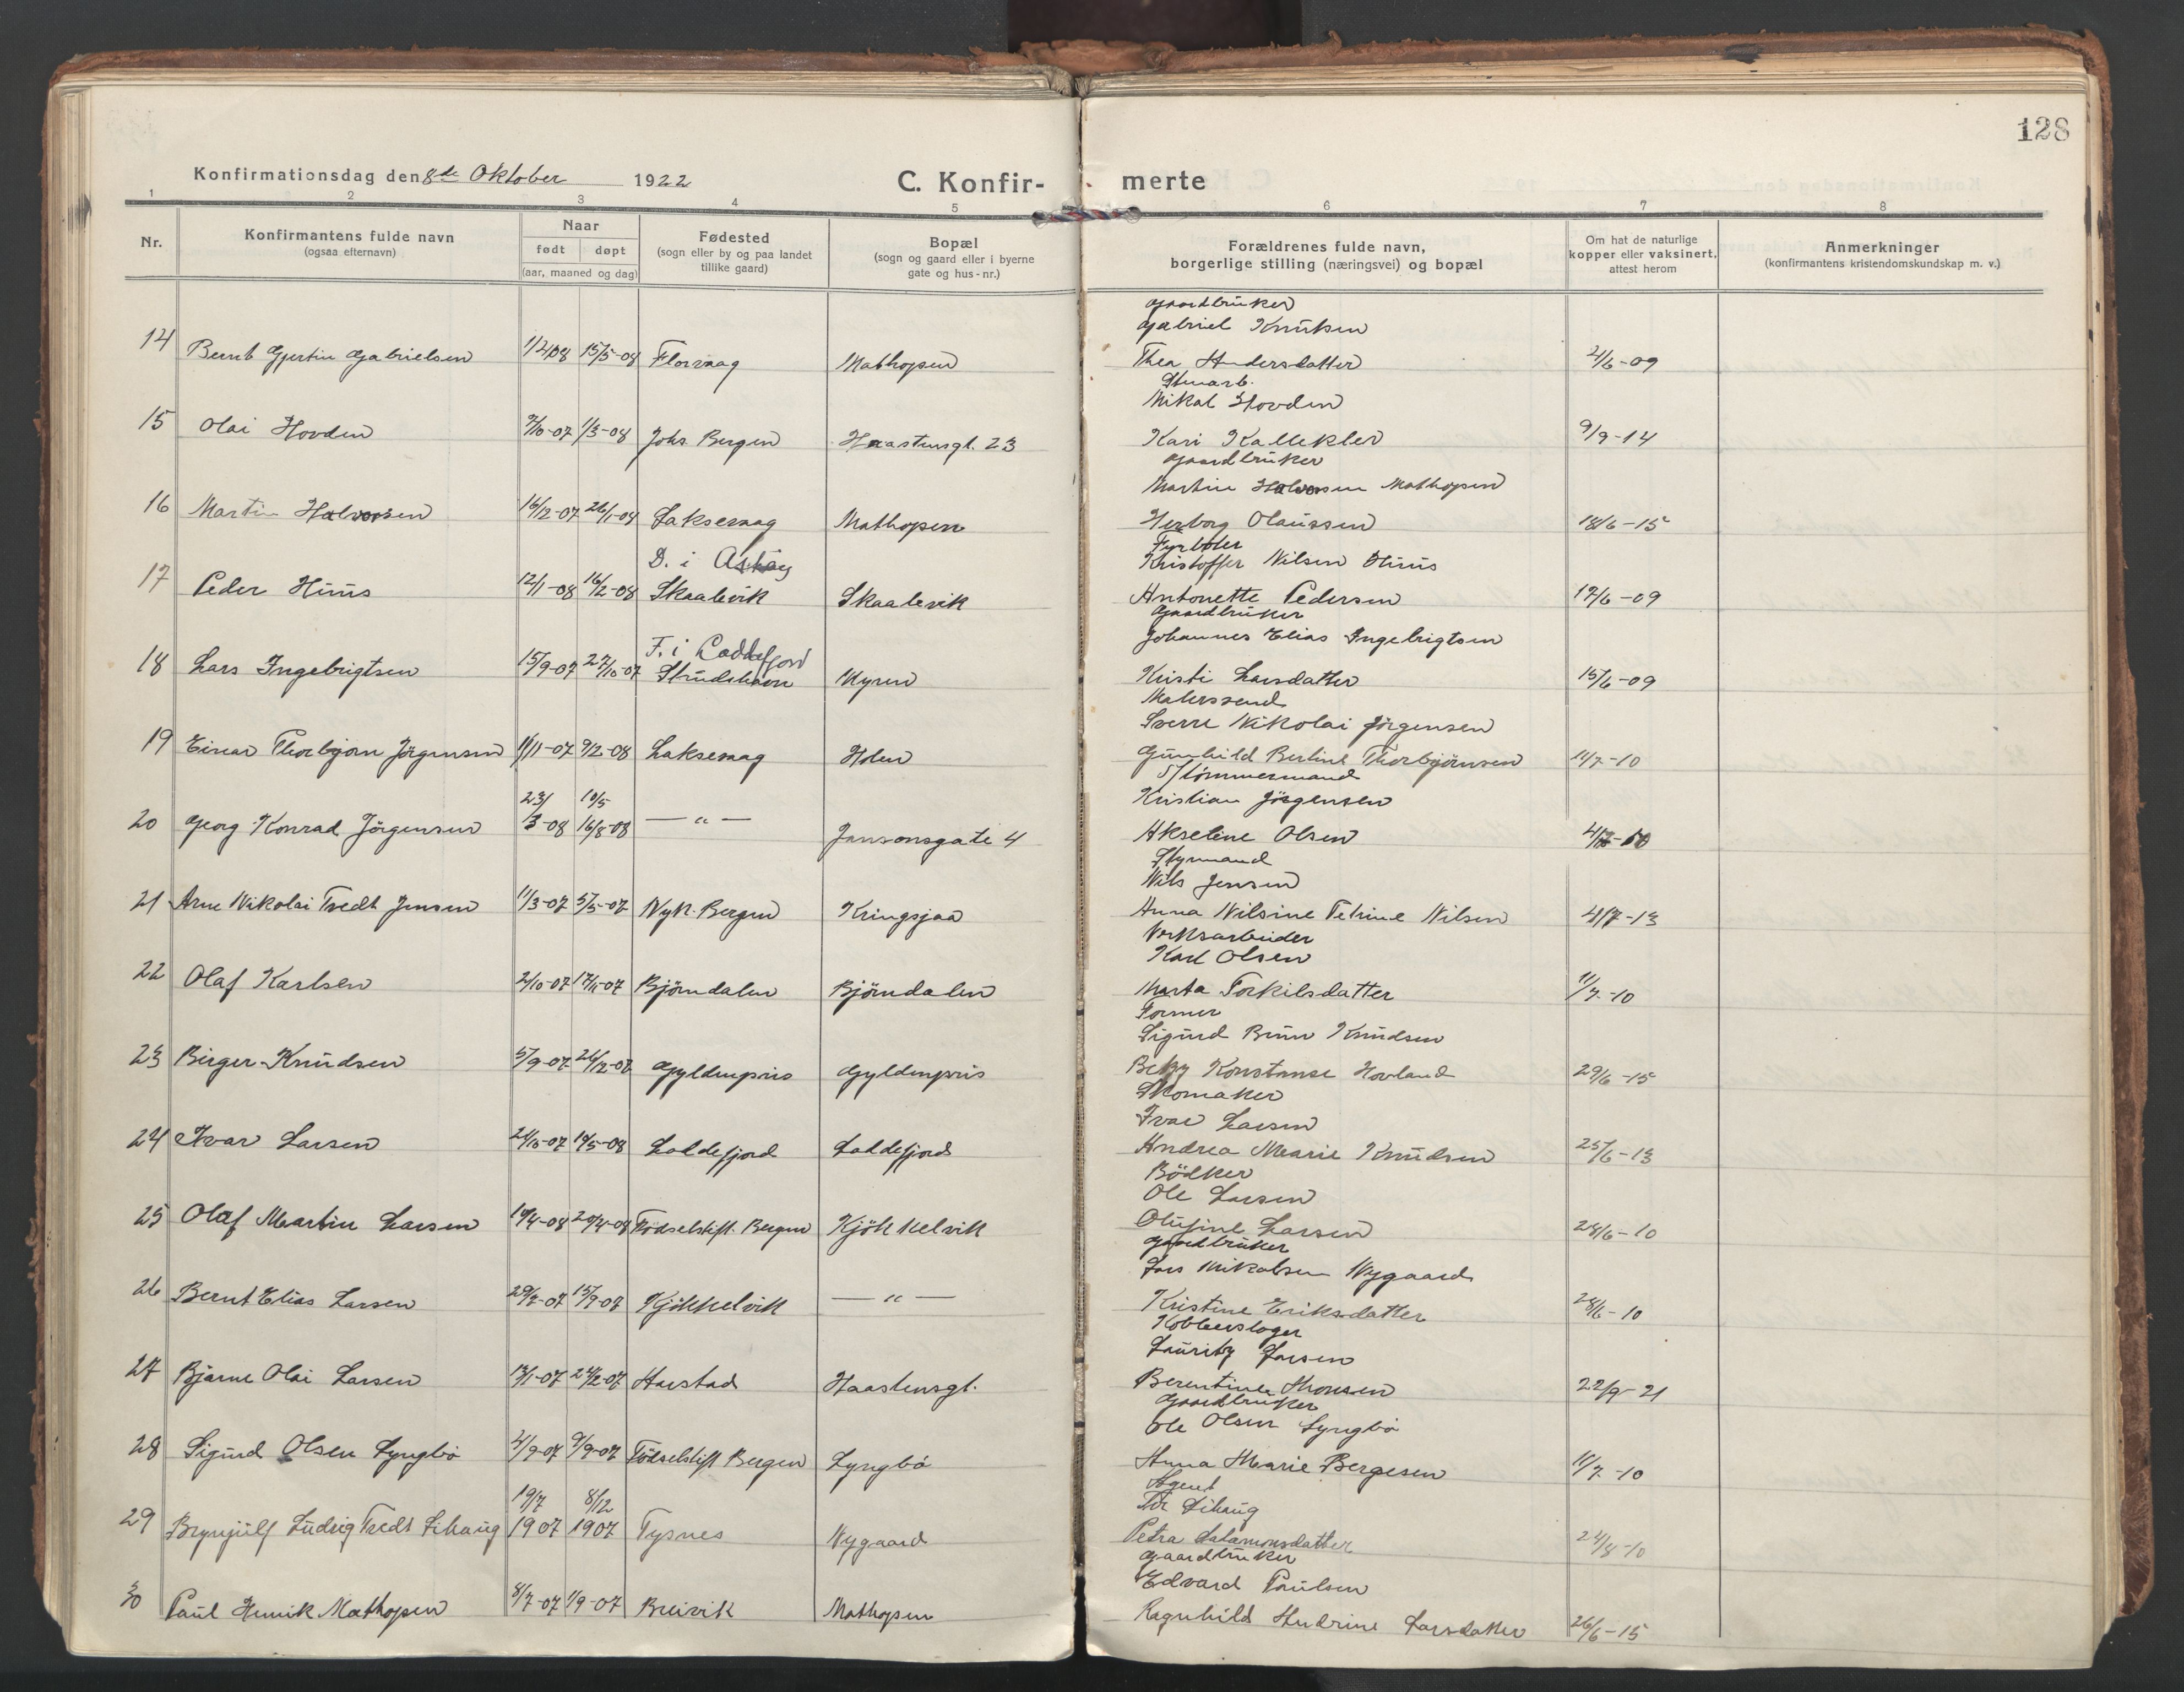 128
Konfirmationsdag den 8de Oktober 1922
C. Konfir- merte
1 2 3 4 5 6 7 8
Nr.
Konfirmantens fulde navn
(ogsaa efternavn)
Naar
født døpt
(aar, maaned og dag)
Fødested
(sogn eller by og paa landet
tillike gaard)
Bopæl
(sogn og gaard eller i byerne
gate og hus-nr.)
Forældrenes fulde navn,
borgerlige stilling (næringsvei) og bopæl
Om hat de naturlige
kopper eller vaksinert,
attest herom
Anmerkninger
(konfirmantens kristendomskundskap m. v.)
gaardbruker
Gabriel Knutsen
14 Bernt Gjertin Gabrielsen 15/5-08 Florvaag Mathopen Thea Andersdatter 2/6-09
Mikal Hovden
15 Olai Hovden 7/10-07 1/3-08 Johs. Bergen Haastensgt. 23 Kari 9/9-14
gaardbruker
Martin Halvorsen Mathopen
16 Martin Halvorsen 16/12-07 26/1-08 Laksevaag Mathopen Herborg Olaussen 18/6-15
Fyrbøter
D. i Askøy Kristoffer Nilsen Huus
17 Peder Huus 12/1-08 16/2-08 Skaalevik Skaalevik Antonette Pedersen 19/6-09
gaardbruker
F. i Loddefjord Johannes Elias Ingebrigtsen
18 Lars Ingebrigtsen 15/9-07 27/10-07 Myren Kristi Larsdatter 15/6-09
Malersvend
Sverre Nikolai Jörgensen
19 Einar Thorbjörn Jörgensen 1/11-07 9/2-08 Laksevaag Holen Gunhild Berline Thorbjörnsen 14/7-10
Tömmermand
23/ 10/5 Kristian Jörgensen
20 Georg Konrad Jörgensen 3-08 16/8-08 — " — Jansonsgate 4 Akseline Olsen
Styrmand
Nils Jensen
21 Arne Nikolai Tvedt Jensen 11/3-07 5/5-07 Nyk. Bergen Kringsjaa Anna Nilsine Petrine Nilsen 4/7-13
Verksarbeider
Karl Olsen
22 Olaf Karlsen 2/10-07 17/11-07 Björndalen Björndalen Marta Torkilsdatter 11/7-10
Former
Sigurd Brun Knudsen
23 Birger Knudsen 5/9-07 26/12-07 Gyldenpris Gyldenpris Betzy Konstanse Hovland 29/6-15
Skomaker
Ivar Larsen
24 Ivar Larsen 24/10-07 19/5-08 Loddefjord Loddefjord Andrea Marie Knudsen 25/6-13
Bödker
Ole Larsen
25 Olaf Martin Larsen 19/4-08 29/4-08 Födselstift. Bergen Kjökkelvik Olufine Larsen 28/6-10
gaardbruker
Lars Mikalsen Nygaard
26 Bernt Elias Larsen 29/7-07 15/9-07 Kjökkelvik — " — Kristine Eriksdatter 28/6-10
Kobberslager
Lauritz Larsen
27 Bjarne Olai Larsen 13/1-07 24/2-07 Harstad Haastensgt. Berentine Monsen 22/9-21
gaardbruker
Ole Olsen Lyngbö
28 Sigurd Olsen Lyngbö 4/9-07 9/9-07 Födselstift Bergen Lyngbö Anna Marie Bergesen 11/7-10
Agent
19/7 8/12 Tör Lihaug
29 Brynjulf Ludvig Tvedt Lihaug 1907 1907 Tysnes Nygaard Petra Salamonsdatter 24/8-10
gaardbruker
Edvard Paulsen
30 Paul Henrik Mathopen 8/7-07 1/9-07 Breivik Mathopen Ragnhild Andrine Larsdatter 26/6-15